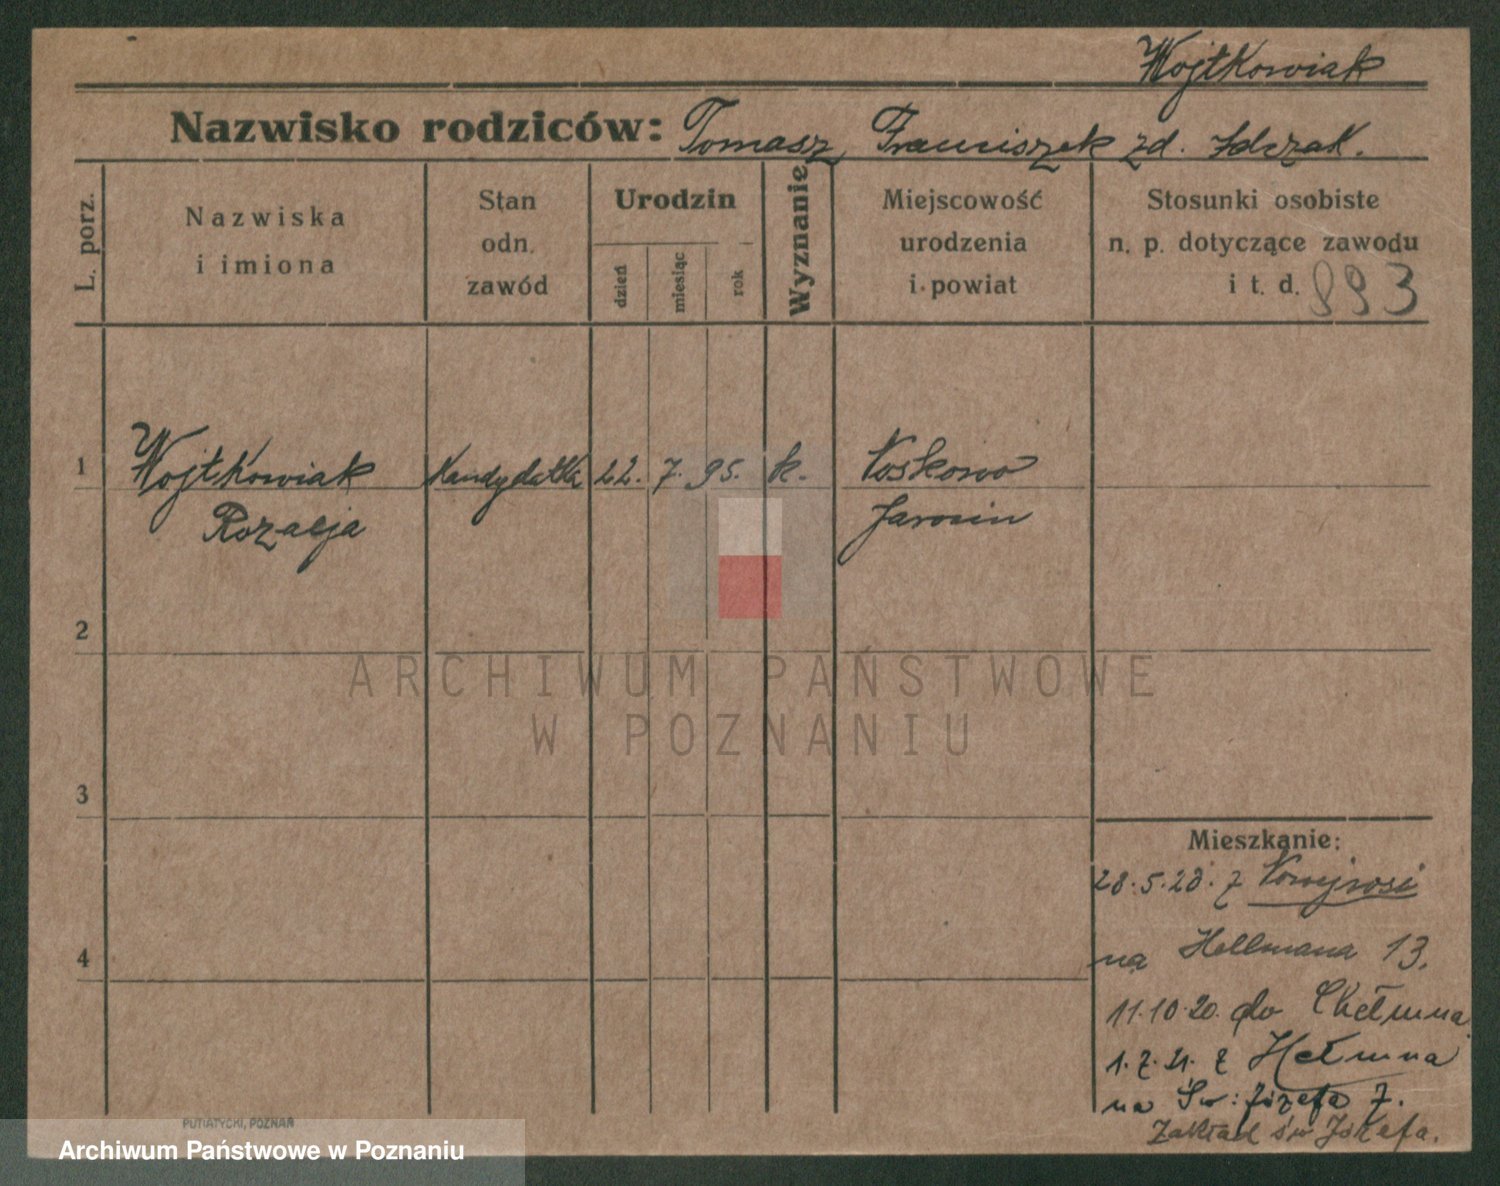 Wojtkowiak
Nazwisko rodziców: Tomasz, Franciszek zd. Idczak.
L. porz.
Nazwiska
i imiona
Stan
odn.
zawód
Urodzin
dzień
miesiąc
rok
Wyznanie
Miejscowość
urodzenia
i powiat
Stosunki osobiste
n. p. dotyczące zawodu
i t. d. 893
1 Wojtkowiak Kandydatka 22. 7. 95. k. Noskowo
Rozalja Jarocin
2
ARCHIWUM PAŃSTWOWE
W POZNANIU
3
Mieszkanie:
28.5.20. z Nowejwsi
4
na Hellmana 13.
11.10.20. do Chełmna
1.7.21. z Hełmna
na Św: Józefa 7.
Zakład św Józefa.
PUTIATYCKI, POZNAŃ
Archiwum Państwowe w Poznaniu